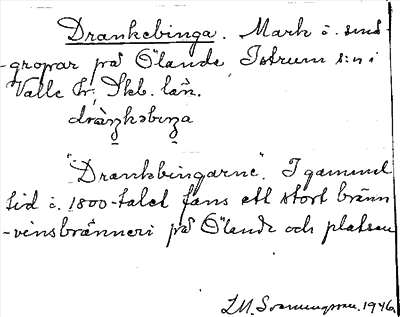 Drankebinga. Mark å. små-
-gropar på Ölanda, Istrum s:n i
Valle hr, Skb. län.
dràŋkəbiŋa
"Drankbingarne". I gammal
tid å. 1800-talet fans ett stort bränn
-vinsbränneri på Ölanda och platsen
L.M. Svenungsson. 1946.